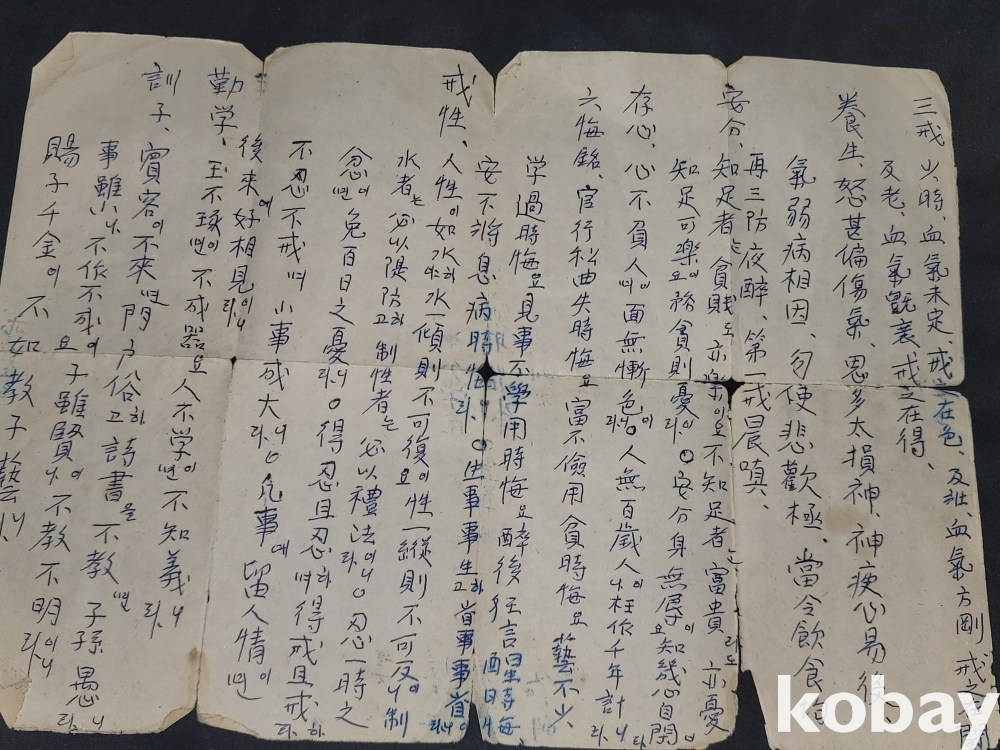 三戒、少時、血氣未定、戒之在色、及壯、血氣方剛、戒之在鬪
及老、血氣旣衰、戒之在得、
養生、怒甚偏傷氣、思多太損神、神疲心易役
氣弱病相因、勿使悲歡極、當令飮食均
再三防夜醉、第一戒晨嗔、
安分、知足者는貧賤도亦樂이오不知足者는富貴라도亦憂
知足可樂요務貪則憂라○安分身無辱이요知幾心自閑이
存心、心不負人이면面無慚色이라○人無百歲人이나枉作千年計니라
六悔銘、官行私曲失時悔요富不儉用貧時悔요藝不少
学過時悔요見事不學用時悔요醉後狂言醒時悔
安不將息病時悔라○生事事生하고省事事省이니라
戒性、人性이如水하야水一傾則不可復요性一縱則不可反이니制
水者는必以隄防하고制性者는必以禮法이니라○忍一時之
忿이면免百日之憂니라○得忍且忍하며得戒且戒하라
不忍不戒면小事成大니라○凡事에留人情이면
後來에好相見이니라
勤学、玉不琢이면不成器요人不学이면不知義니라
訓子、賓客이不來면門戶俗하고詩書을不敎면子孫愚니라
事雖小나不作不成이요子雖賢이나不教不明이니라
賜子千金이不如教子一藝니라
kobay